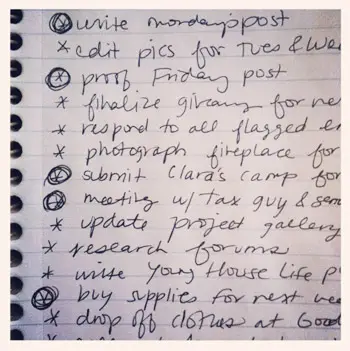 write monday's post
* edit pics for Tues & Wed
proof Friday post
* finalize giveaway for
* respond to all flagged
* photograph fireplace for
submit Clara's camp for
meeting w/ tax guy & sen
* update project gallery
* research forums
* write Young House Life p
buy supplies for next
* drop off clothes at Good